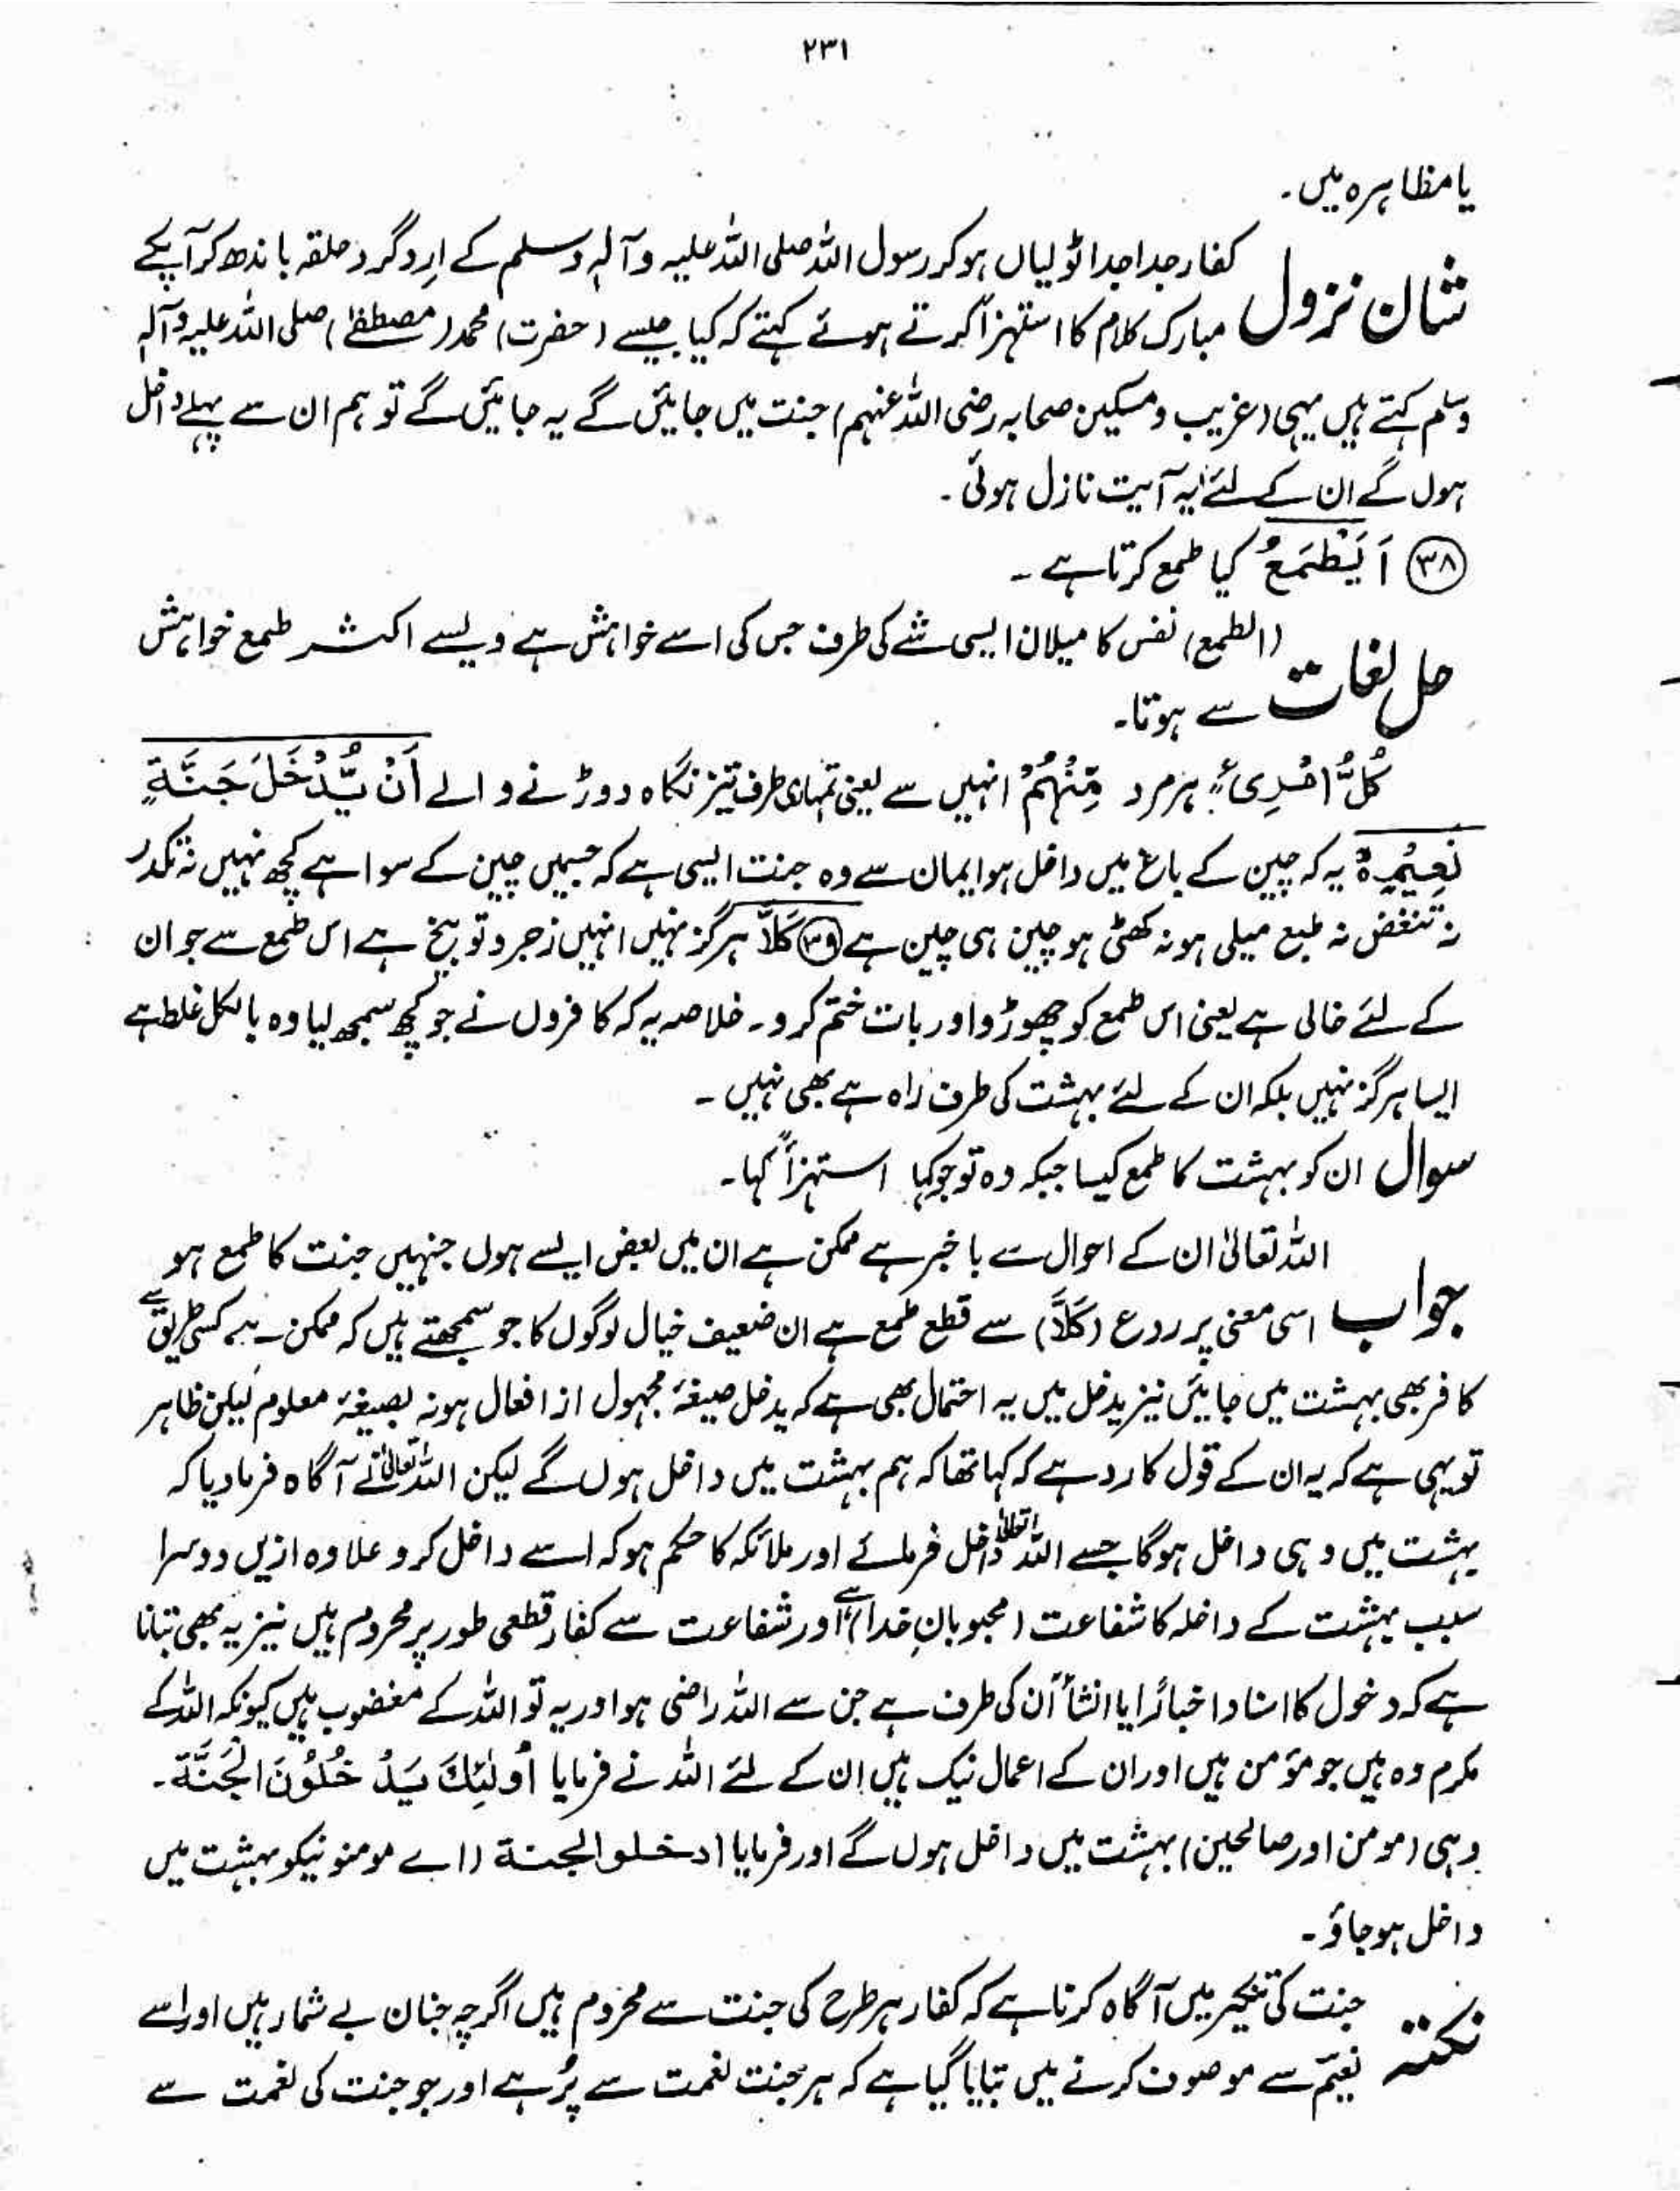 ۲۳۱
یا مظاہرہ میں۔
شان نزول کفار جدا جدا ٹولیاں ہو کر رسول اللہ صلی اللہ علیہ وآلہٖ وسلم کے اِردگرد حلقہ باندھ کر آپکے
مبارک کلام کا استہزاً کرتے ہوئے کہتے کہ کیا جیسے (حضرت) محمد (مصطفےٰ) صلی اللہ علیہ وآلہ
وسلم کہتے ہیں یہی (غریب و مسکین صحابہ رضی اللہ عنہم) جنت میں جائیں گے یہ جائیں گے تو ہم ان سے پہلے داخل
ہوں گے ان کے لئے یہ آیت نازل ہوئی۔
۳۸ اَیَطْمَعُ کیا طمع کرتا ہے۔
حل لغات (الطمع) نفس کا میلان ایسی شے کی طرف جس کی اسے خواہش ہے ویسے اکثر طمع خواہش
سے ہوتا۔
کُلُّ امْرِیءٍ ہر مرد مِّنْہُمْ انہیں سے یعنی تمہاری طرف تیز نگاہ دوڑنے والے اَنْ یُّدْخَلَ جَنَّۃَ
نَعِیْمٍ ہ یہ کہ چین کے باغ میں داخل ہو ایمان سے وہ جنت ایسی ہے کہ جسمیں چین کے سوا ہے کچھ نہیں نہ تکدر
نہ تنغض نہ طبع میلی ہو نہ کھٹی ہو چین ہی چین ہے ۳۹ کَلَّا ہرگز نہیں انہیں زجر و توبیخ ہے اس طمع سے جو ان
کے لئے خالی ہے یعنی اس طمع کو چھوڑو اور بات ختم کرو۔ خلاصہ یہ کہ کافروں نے جو کچھ سمجھ لیا وہ بالکل غلط ہے
ایسا ہرگز نہیں بلکہ ان کے لئے بہشت کی طرف راہ ہے بھی نہیں۔
سوال ان کو بہشت کا طمع کیسا جبکہ وہ تو جو کہا استہزاً کہا۔
جواب اللہ تعالیٰ ان کے احوال سے باخبر ہے ممکن ہے ان میں بعض ایسے ہوں جنہیں جنت کا طمع ہو
اسی معنی پر ردع (کَلَّا) سے قطع طمع ہے ان ضعیف خیال لوگوں کا جو سمجھتے ہیں کہ ممکن ہے کسی طریق سے
کافر بھی بہشت میں جائیں نیز یدخل میں یہ احتمال بھی ہے کہ یدخل صیغۂ مجہول از افعال ہو نہ بصیغۂ معلوم لیکن ظاہر
تو یہی ہے کہ یہ ان کے قول کا رد ہے کہ کہا تھا کہ ہم بہشت میں داخل ہوں گے لیکن اللہ تعالیٰ نے آگاہ فرمادیا کہ
بہشت میں وہی داخل ہوگا جسے اللہ تعالیٰ داخل فرمائے اور ملائکہ کا حکم ہو کہ اسے داخل کرو علاوہ ازیں دوسرا
سبب بہشت کے داخلہ کا شفاعت (محبوبانِ خدا) ہے اور شفاعت سے کفار قطعی طور پر محروم ہیں نیز یہ بھی بتانا
ہے کہ دخول کا اسناد اخباراً یا انشاً ان کی طرف ہے جن سے اللہ راضی ہو اور یہ تو اللہ کے مغضوب ہیں کیونکہ اللہ کے
مکرم وہ ہیں جو مؤمن ہیں اور ان کے اعمال نیک ہیں ان کے لئے اللہ نے فرمایا اُولٰئِکَ یَدْخُلُوْنَ الْجَنَّۃَ۔
وہی (مومن اور صالحین) بہشت میں داخل ہوں گے اور فرمایا ادخلو الجنۃ (اے مومنو نیکو بہشت میں
داخل ہو جاؤ۔
نکتہ جنت کی تنکیر میں آگاہ کرنا ہے کہ کفار ہر طرح کی جنت سے محروم ہیں اگرچہ جنان بے شمار ہیں اور اسے
نعیم سے موصوف کرنے میں بتایا گیا ہے کہ ہر جنت نعمت سے پُر ہے اور جو جنت کی نعمت سے